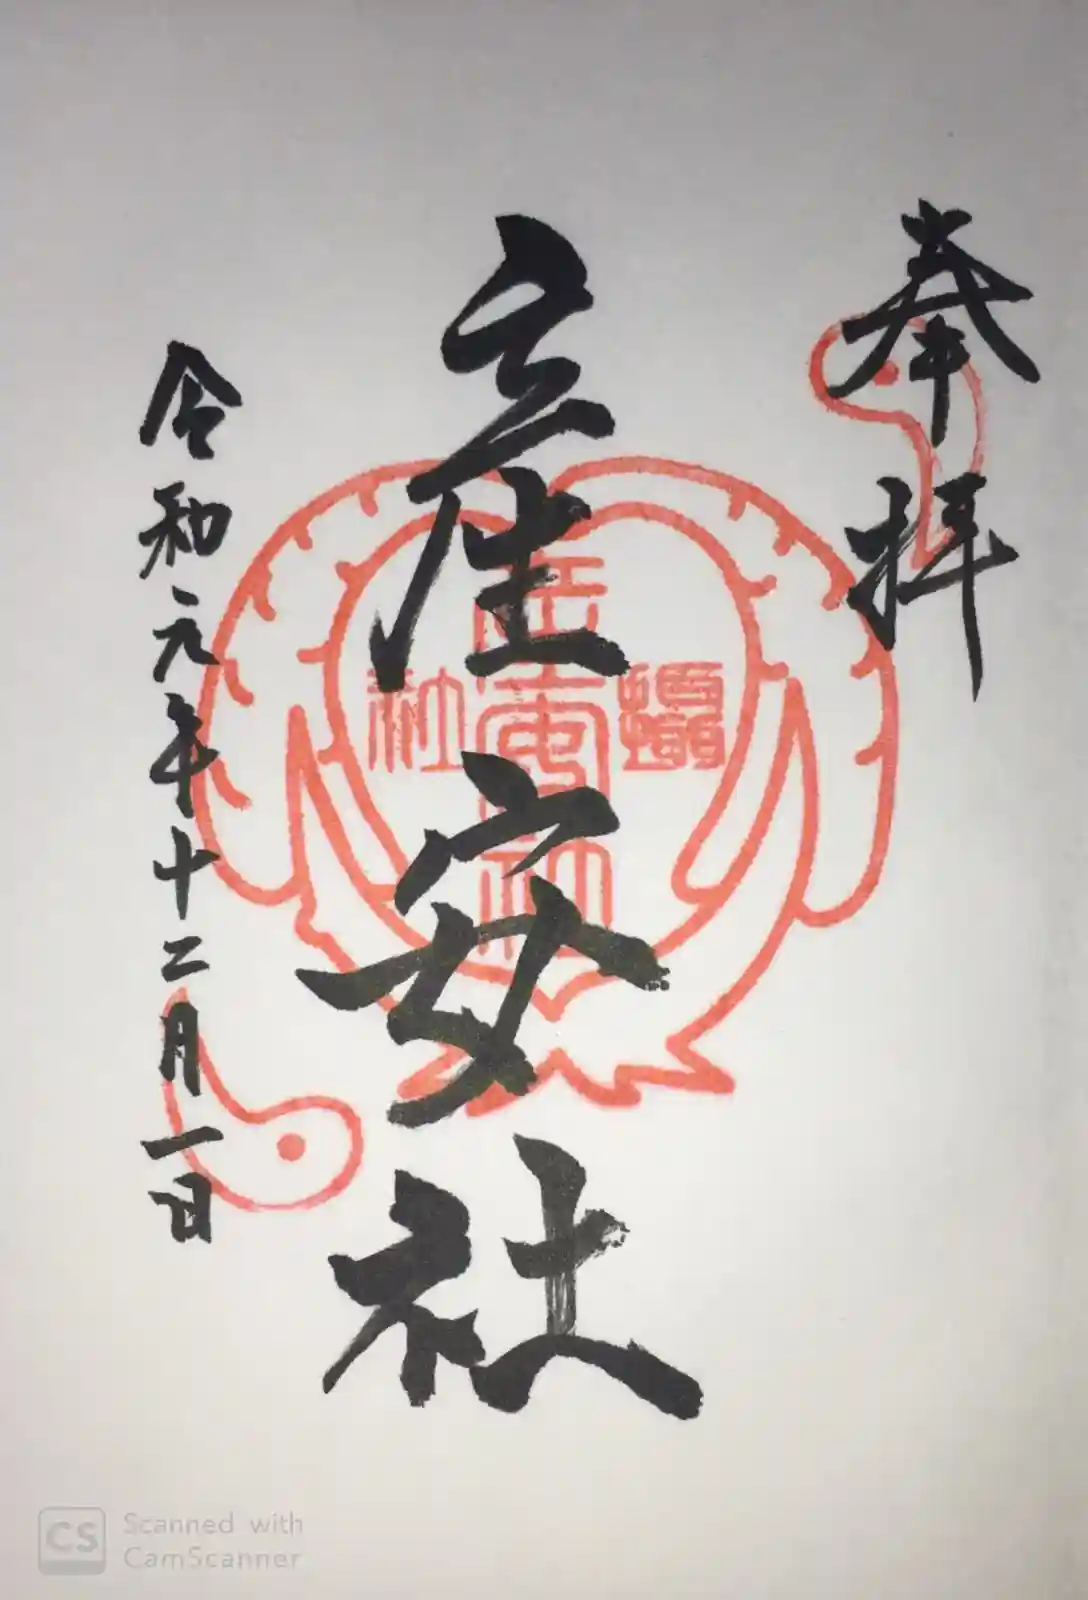 奉拝
産安社
令和元年十二月一日
攝社
産安社
CS Scanned with
CamScanner